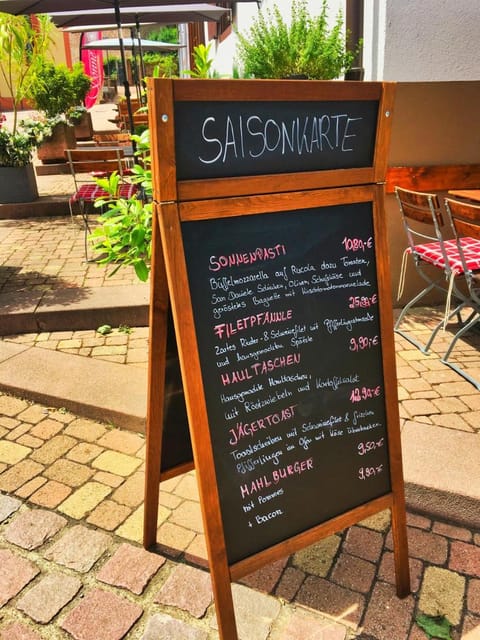 SAISONKARTE
SONNENPASTI 10,80,-€
Büffelmozzarella auf Rucola dazu Tomaten,
San Daniele Schinken, Oliven, Schafskäse und
geröstetes Baguette mit
FILETPFANNLE 25,80,-€
Zartes Rinder- & Schweinefilet mit Pfifferlingsrahmsoße
und hausgemachten Spätzle
MAULTASCHEN 9,90,-€
Hausgemachte Maultaschen,
mit Röstzwiebeln und Kartoffelsalat
JÄGERTOAST 12,90,-€
Toastscheiben mit Schweinefilet & frischen
Pfifferlingen im Ofen mit Käse überbacken.
MAHLBURGER 9,50,-€
mit Pommes
+ Bacon 9,80,-€